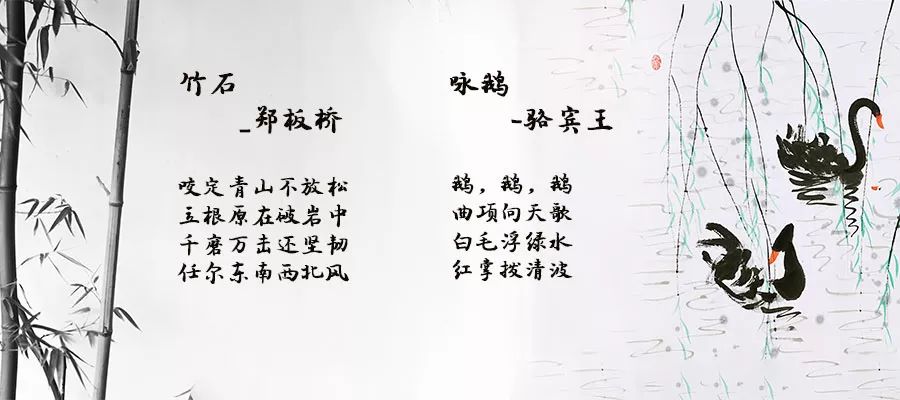 竹石
_郑板桥
咬定青山不放松
立根原在破岩中
千磨万击还坚韧
任尔东南西北风
咏鹅
-骆宾王
鹅，鹅，鹅
曲项向天歌
白毛浮绿水
红掌拨清波